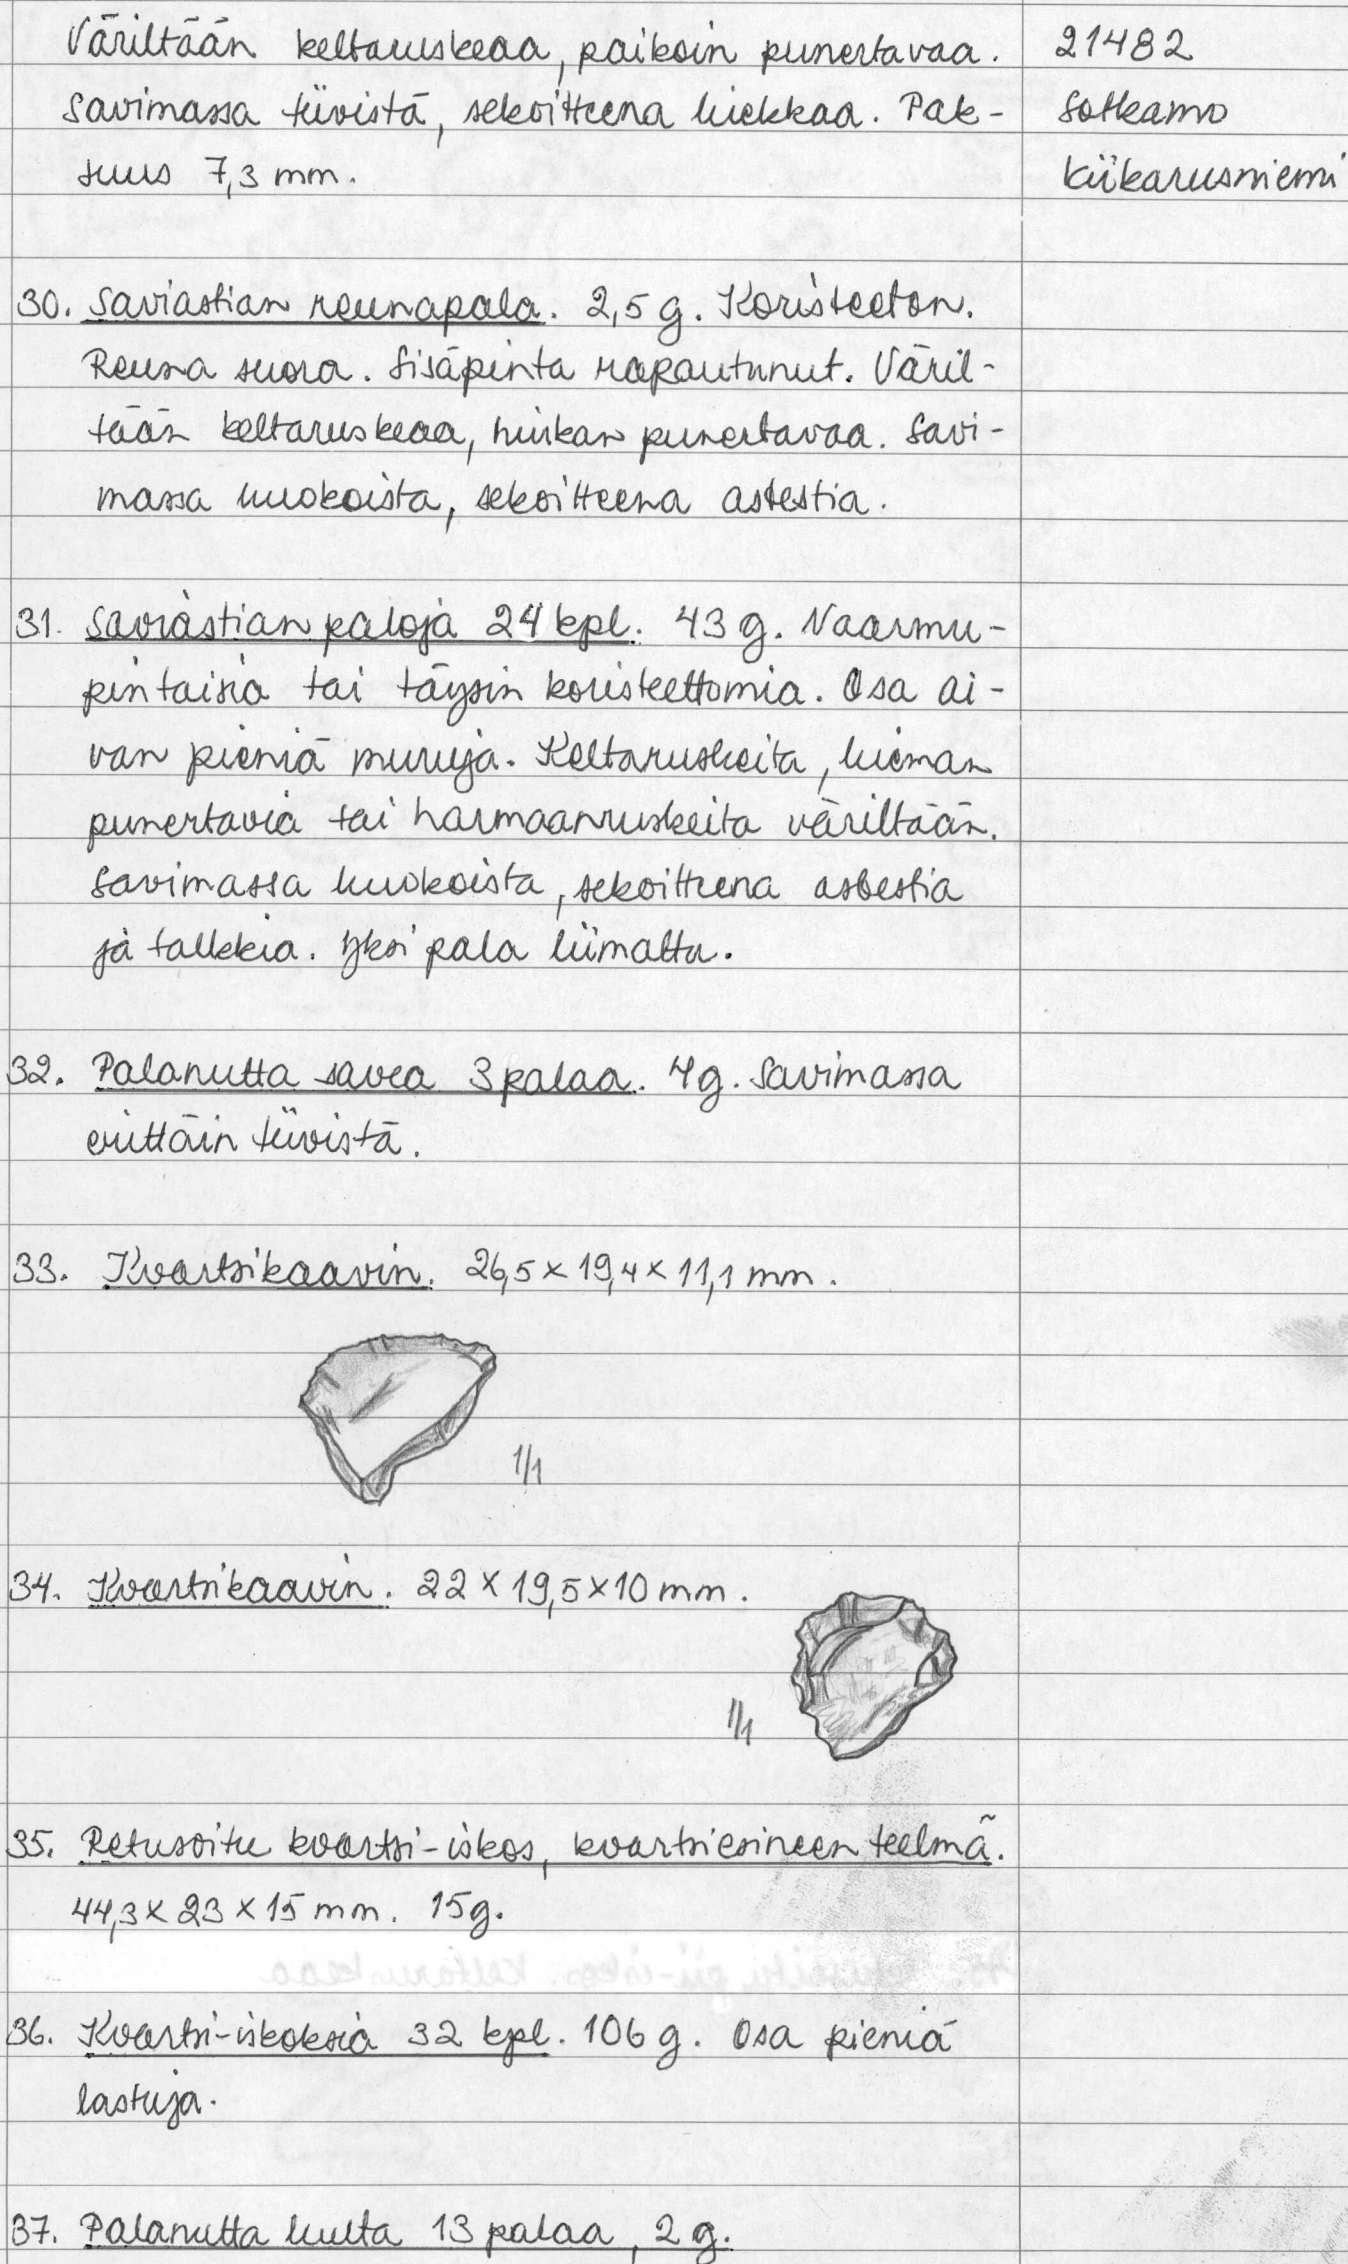 Väriltään keltaruskeaa, paikoin punertavaa. 21482
Savimassa tiivistä, sekoitteena hiekkaa. Pak- Sotkamo
suus 7,3 mm. Kiikarusniemi
30. Saviastian reunapala. 2,5 g. Koristeeton.
Reuna suora. Sisäpinta rapautunut. Väril-
tään keltaruskeaa, hiukan punertavaa. Savi-
massa huokoista, sekoitteena asbestia.
31. Saviastian paloja 24 kpl. 43 g. Naarmu-
pintaisia tai täysin koristeettomia. Osa ai-
van pieniä muruja. Keltaruskeita, hieman
punertavia tai harmaanruskeita väriltään.
Savimassa huokoista, sekoitteena asbestia
ja talkkia. Yksi pala liimattu.
32. Palanutta savea 3 palaa. 4 g. Savimassa
erittäin tiivistä.
33. Kvartsikaavin. 26,5 × 19,4 × 11,1 mm.
1/1
34. Kvartsikaavin. 22 × 19,5 × 10 mm.
1/1
35. Retusoitu kvartsi-iskos, kvartsiesineen teelmä.
44,3 × 23 × 15 mm. 15 g.
36. Kvartsi-iskoksia 32 kpl. 106 g. Osa pieniä
lastuja.
37. Palanutta luuta 13 palaa, 2 g.